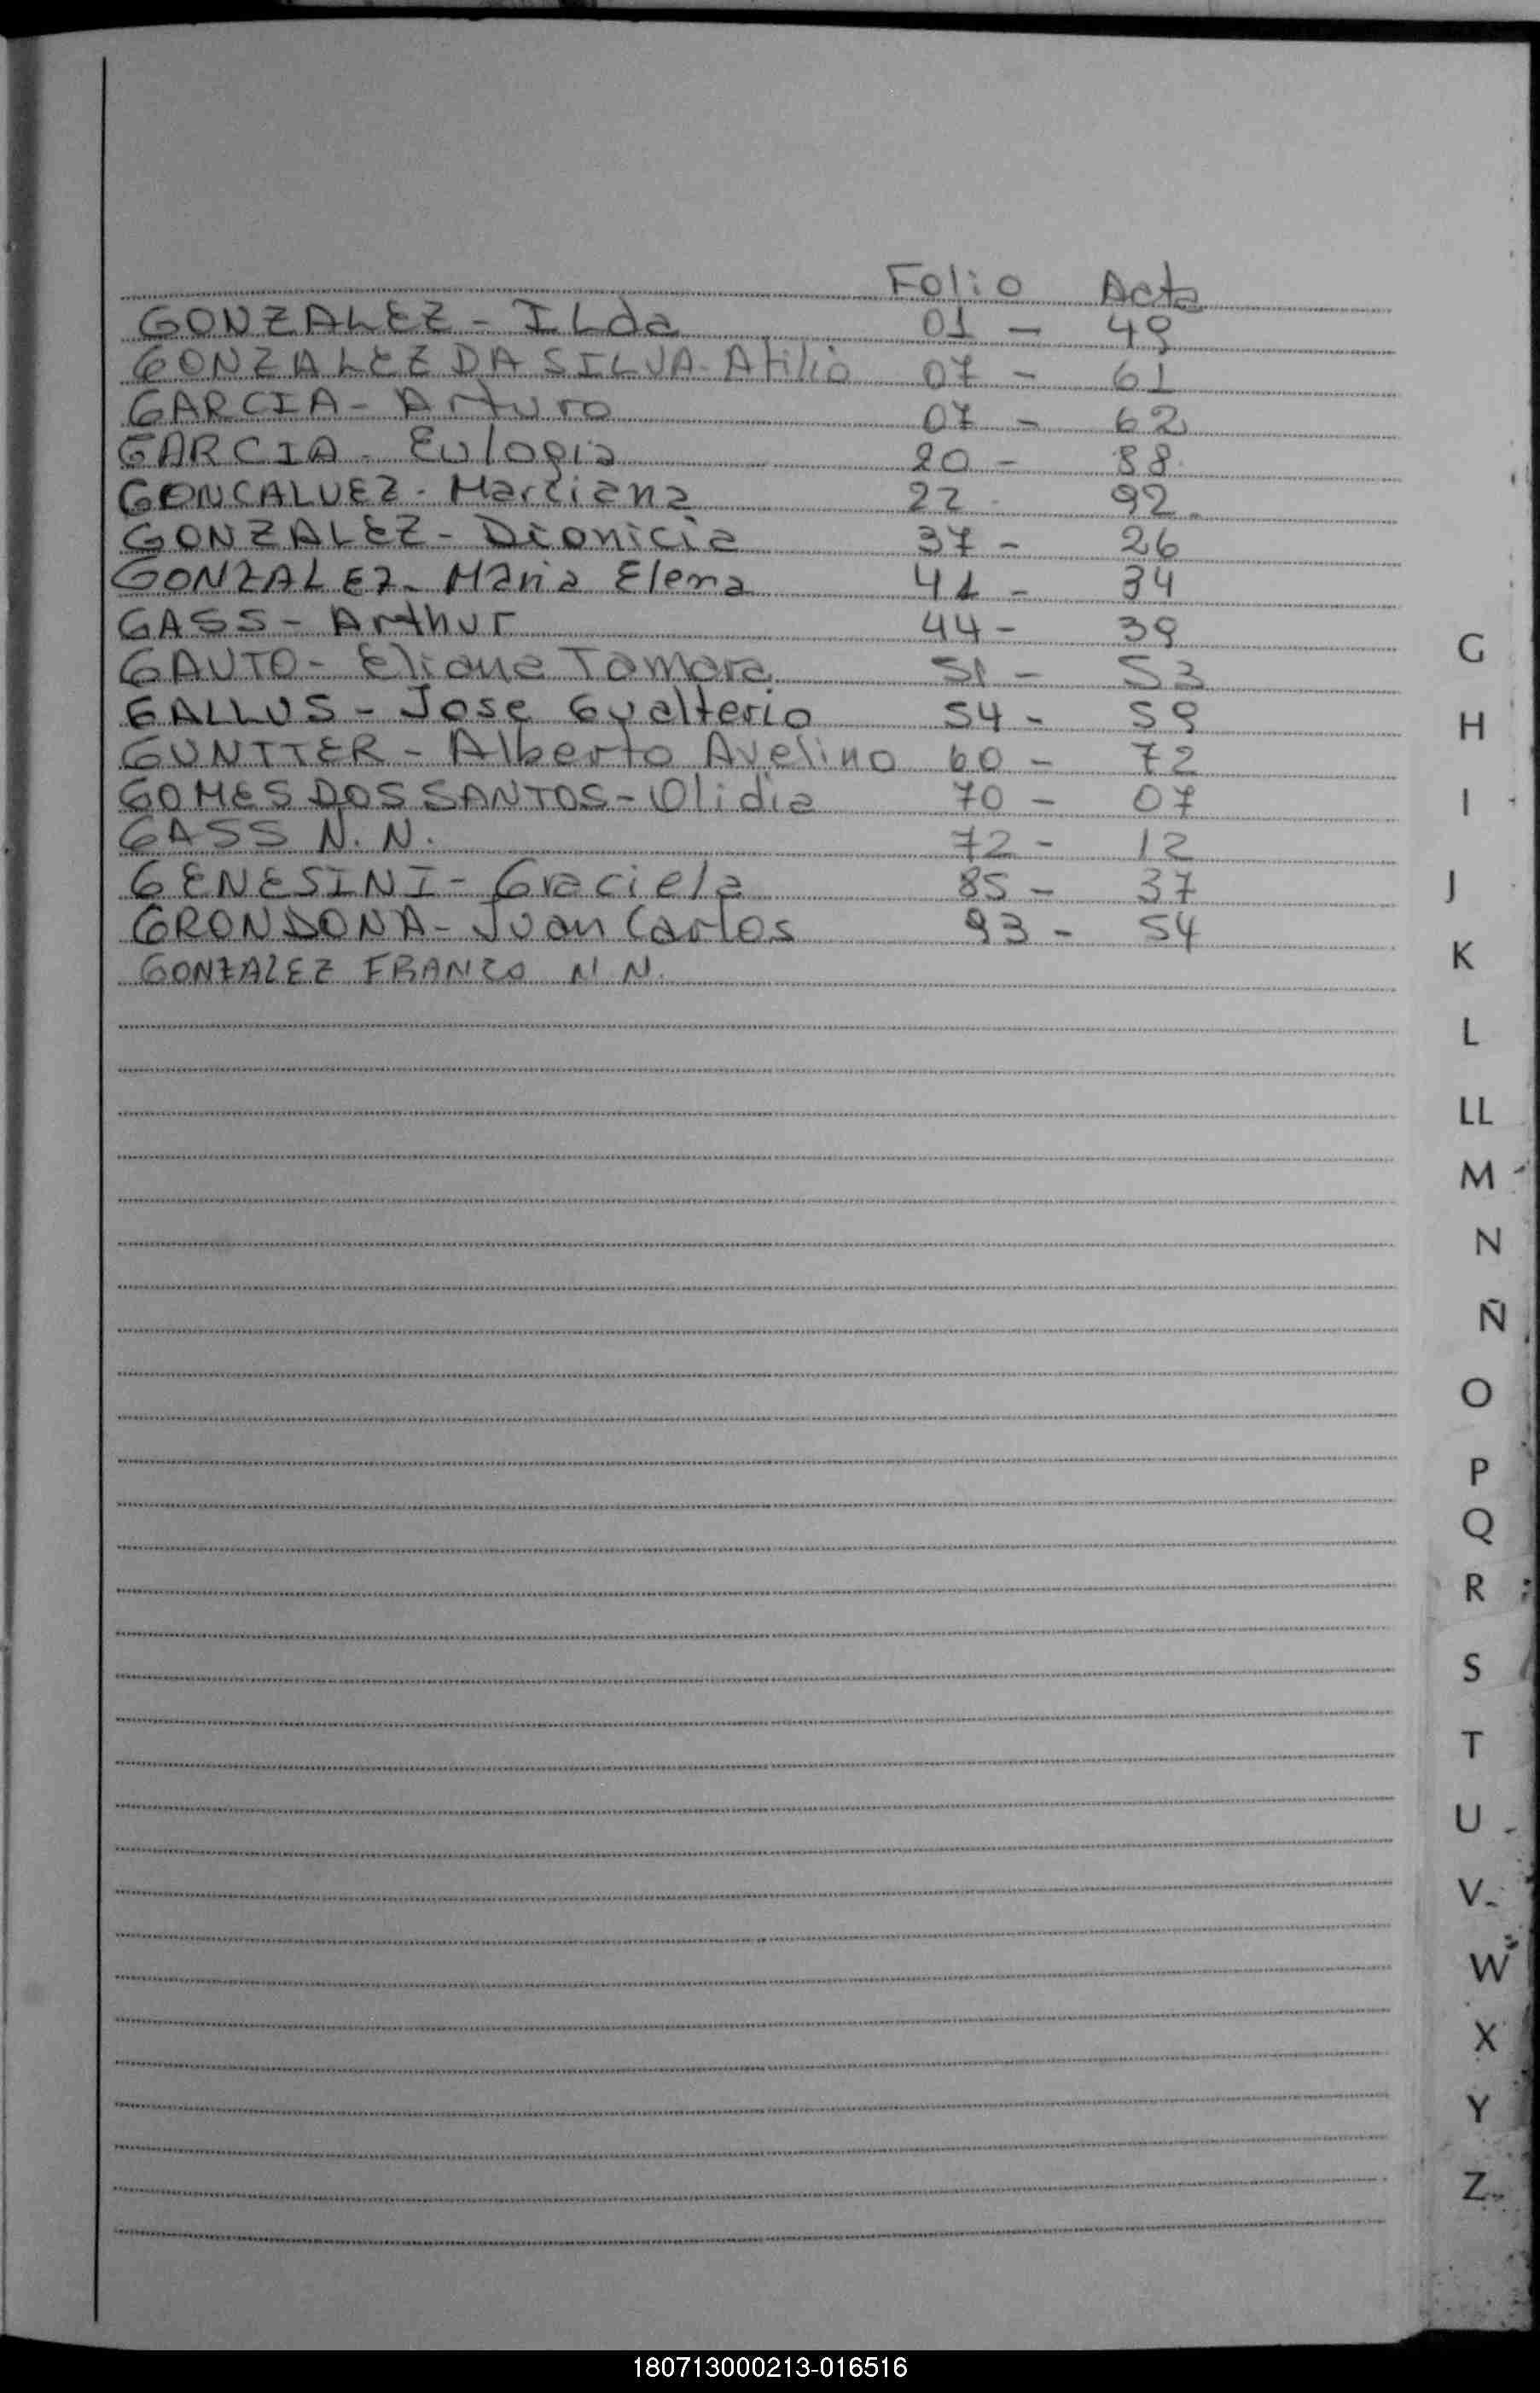 Folio Acta
GONZALEZ - ILda 01 - 49
GONZALEZ DA SILVA - Atilio 07 - 61
GARCIA - Arturo 07 - 62
GARCIA - Eulogia 20 - 88
GONCALVEZ - Marciana 22 - 92
GONZALEZ - Dionicia 37 - 26
GONZALEZ - Maria Elena 41 - 34
GASS - Arthur 44 - 39
GAUTO - Eliane Tamara 51 - 53
GALLUS - Jose Gualterio 54 - 59
GUNTTER - Alberto Avelino 60 - 72
GOMES DOS SANTOS - Olidia 70 - 07
GASS N. N. 72 - 12
GENESINI - Graciela 85 - 37
GRONDONA - Juan Carlos 93 - 54
GONZALEZ FRANCO N. N.
G
H
I
J
K
L
LL
M
N
Ñ
O
P
Q
R
S
T
U
V
W
X
Y
Z
180713000213-016516